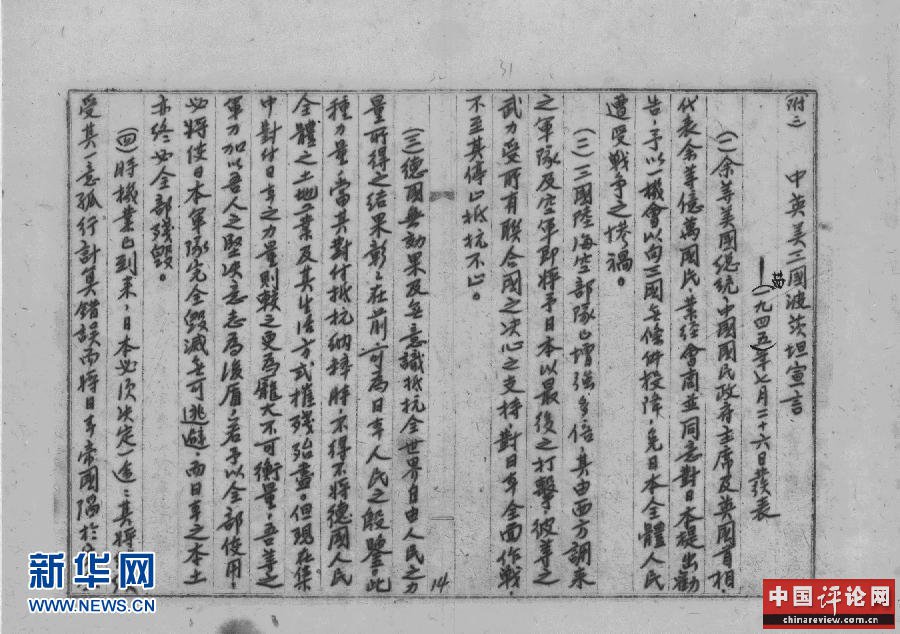 附二 中英美三國波茨坦宣言
(一九四五年七月二十六日發表
(一)余等美國總統、中國國民政府主席及英國首相
代表余等億萬國民業經會商並同意對日本提出勸
告,予以一機會以向三國無條件投降,免日本全體人民
遭受戰爭之慘禍。
(二)三國陸海空部隊已增強多倍,其由西方調來
之軍隊及空軍即將予日本以最後之打擊,彼等之
武力受所有聯合國之決心之支持,對日本全面作戰,
不至其停止抵抗不止。
(三)德國無効果及無意識抵抗全世界自由人民之力
量所得之結果彰彰在前,可為日本人民之殷鑒,此
種力量,當其對付抵抗納粹時,不得不將德國人民
全體之土地工業及其生活方式摧殘殆盡。但現在集
中對付日本之力量則較之更為龐大不可衡量,吾等之
軍力加以吾人之堅決意志為後盾,若予以全部使用,
必將使日本軍隊完全毀滅無可逃避,而日本之本土
亦終必全部殘毀。
(四)時機業已到來,日本必須決定一途:其將
受其一意孤行計算錯誤而將日本帝國陷於
14
31
新华网
WWW.NEWS.CN
中国评论网
chinareview.com